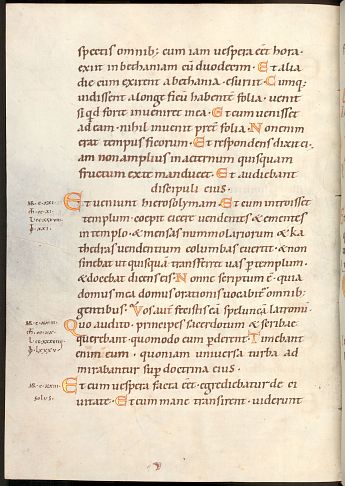 spectis omnib; cum iam vespera eēt hora ·
exiit in bethaniam cū duodecim · Et alia
die cum exirent a bethania · esuriit · Cumq;
vidissent a longe ficū habentē folia · venit
si qd forte inveniret in ea · Et cum venisset
ad eam · nihil invenit pret folia · Non enim
erat tempus ficorum · Et respondens dixit ei ·
iam non amplius in aeternum quisquam
fructum ex te manducet · Et audiebant
discipuli eius ·
Et veniunt hierosolymam · Et cum introisset
templum · coepit eicere vendentes & ementes
in templo · & mensas nummulariorum & ka
thedras vendentium columbas evertit · & non
sinebat ut quisquā transferret vas p templum ·
& docebat dicens eis · Nonne scriptum ē · quia
domus mea domus orationis vocabit omnib;
gentibus · Vos aut fecistis eā speluncā latronū ·
Quo audito · principes sacerdotum & scribae
querebant quomodo eum pderent · Timebant
enim eum · quoniam universa turba ad
mirabantur sup doctrina eius ·
Et cum vespera facta eēt · egrediebatur de ci
vitate · Et cum mane transirent · viderunt
solus ·